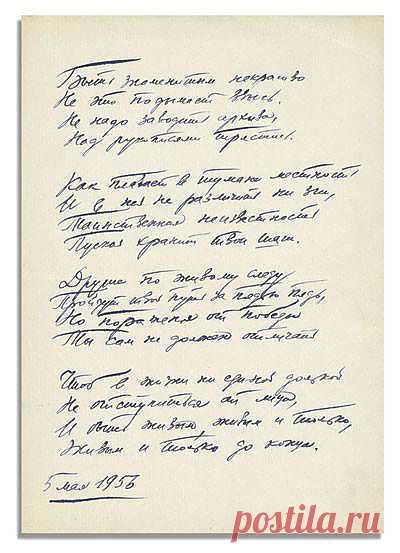 Быть знаменитым некрасиво
Не это подымает ввысь.
Не надо заводить архива,
Над рукописями трястись.
Как плавает в тумане местность
И в ней не различить ни зги,
Таинственная неизвестность
Пускай хранит твои шаги.
Другие по живому следу
Пройдут твой путь за пядью пядь,
Но пораженья от победы
Ты сам не должен отличать
Чтоб в жизни ни единой долькой
Не отступиться от лица,
И быть живым, живым и только,
Живым и только до конца.
5 мая 1956
postila.ru